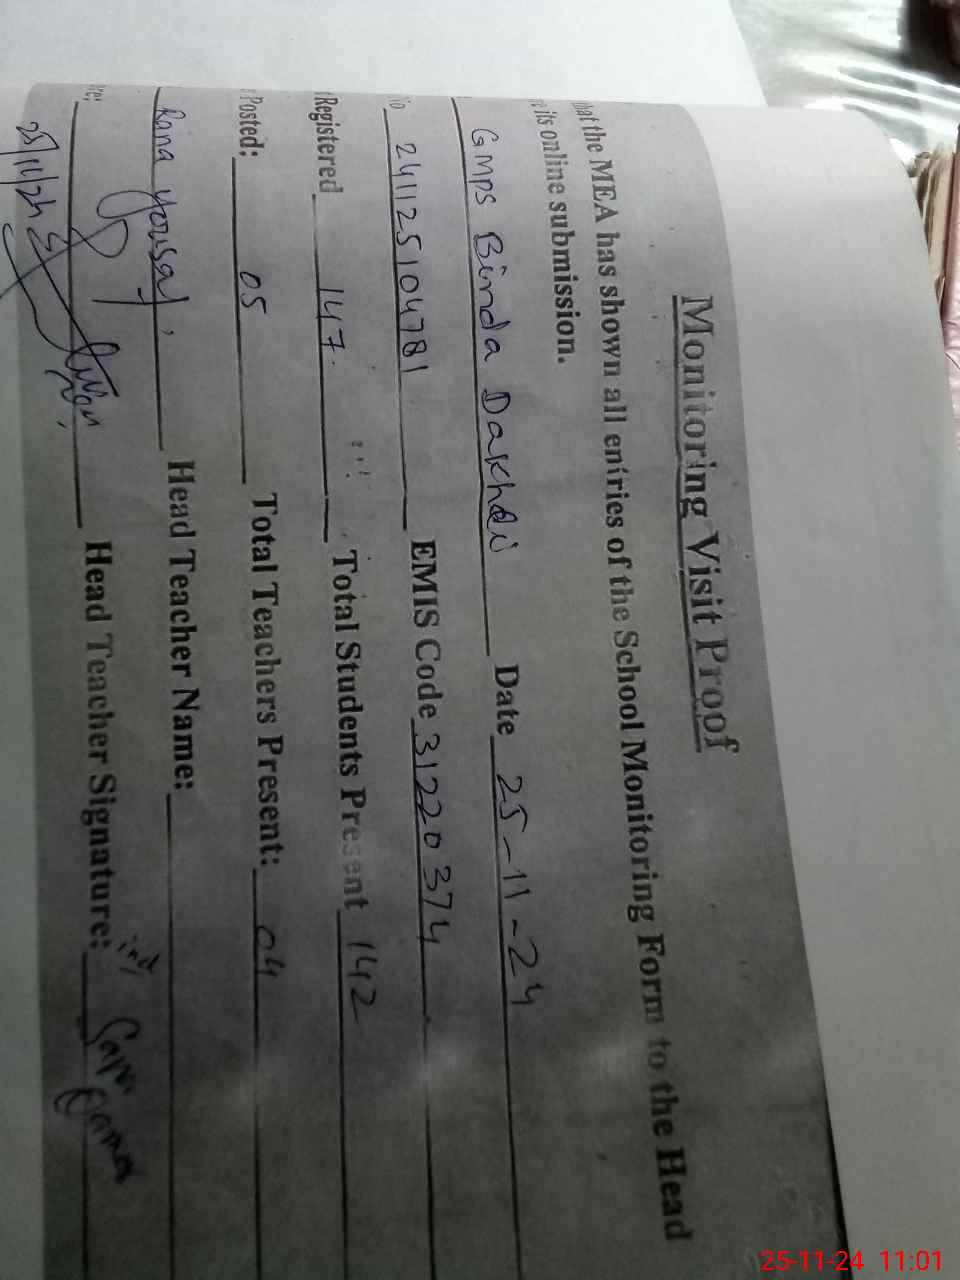 Monitoring Visit Proof
that the MEA has shown all entries of the School Monitoring Form to the Head
its online submission.
GMPS Binda Dakhli Date 25-11-24
No 241125104781 EMIS Code 31220374
Registered 147 Total Students Present 142
Posted: 05 Total Teachers Present: 04
Rana Yousaf, Head Teacher Name:
re: Head Teacher Signature:
25/11/24
25-11-24 11:01